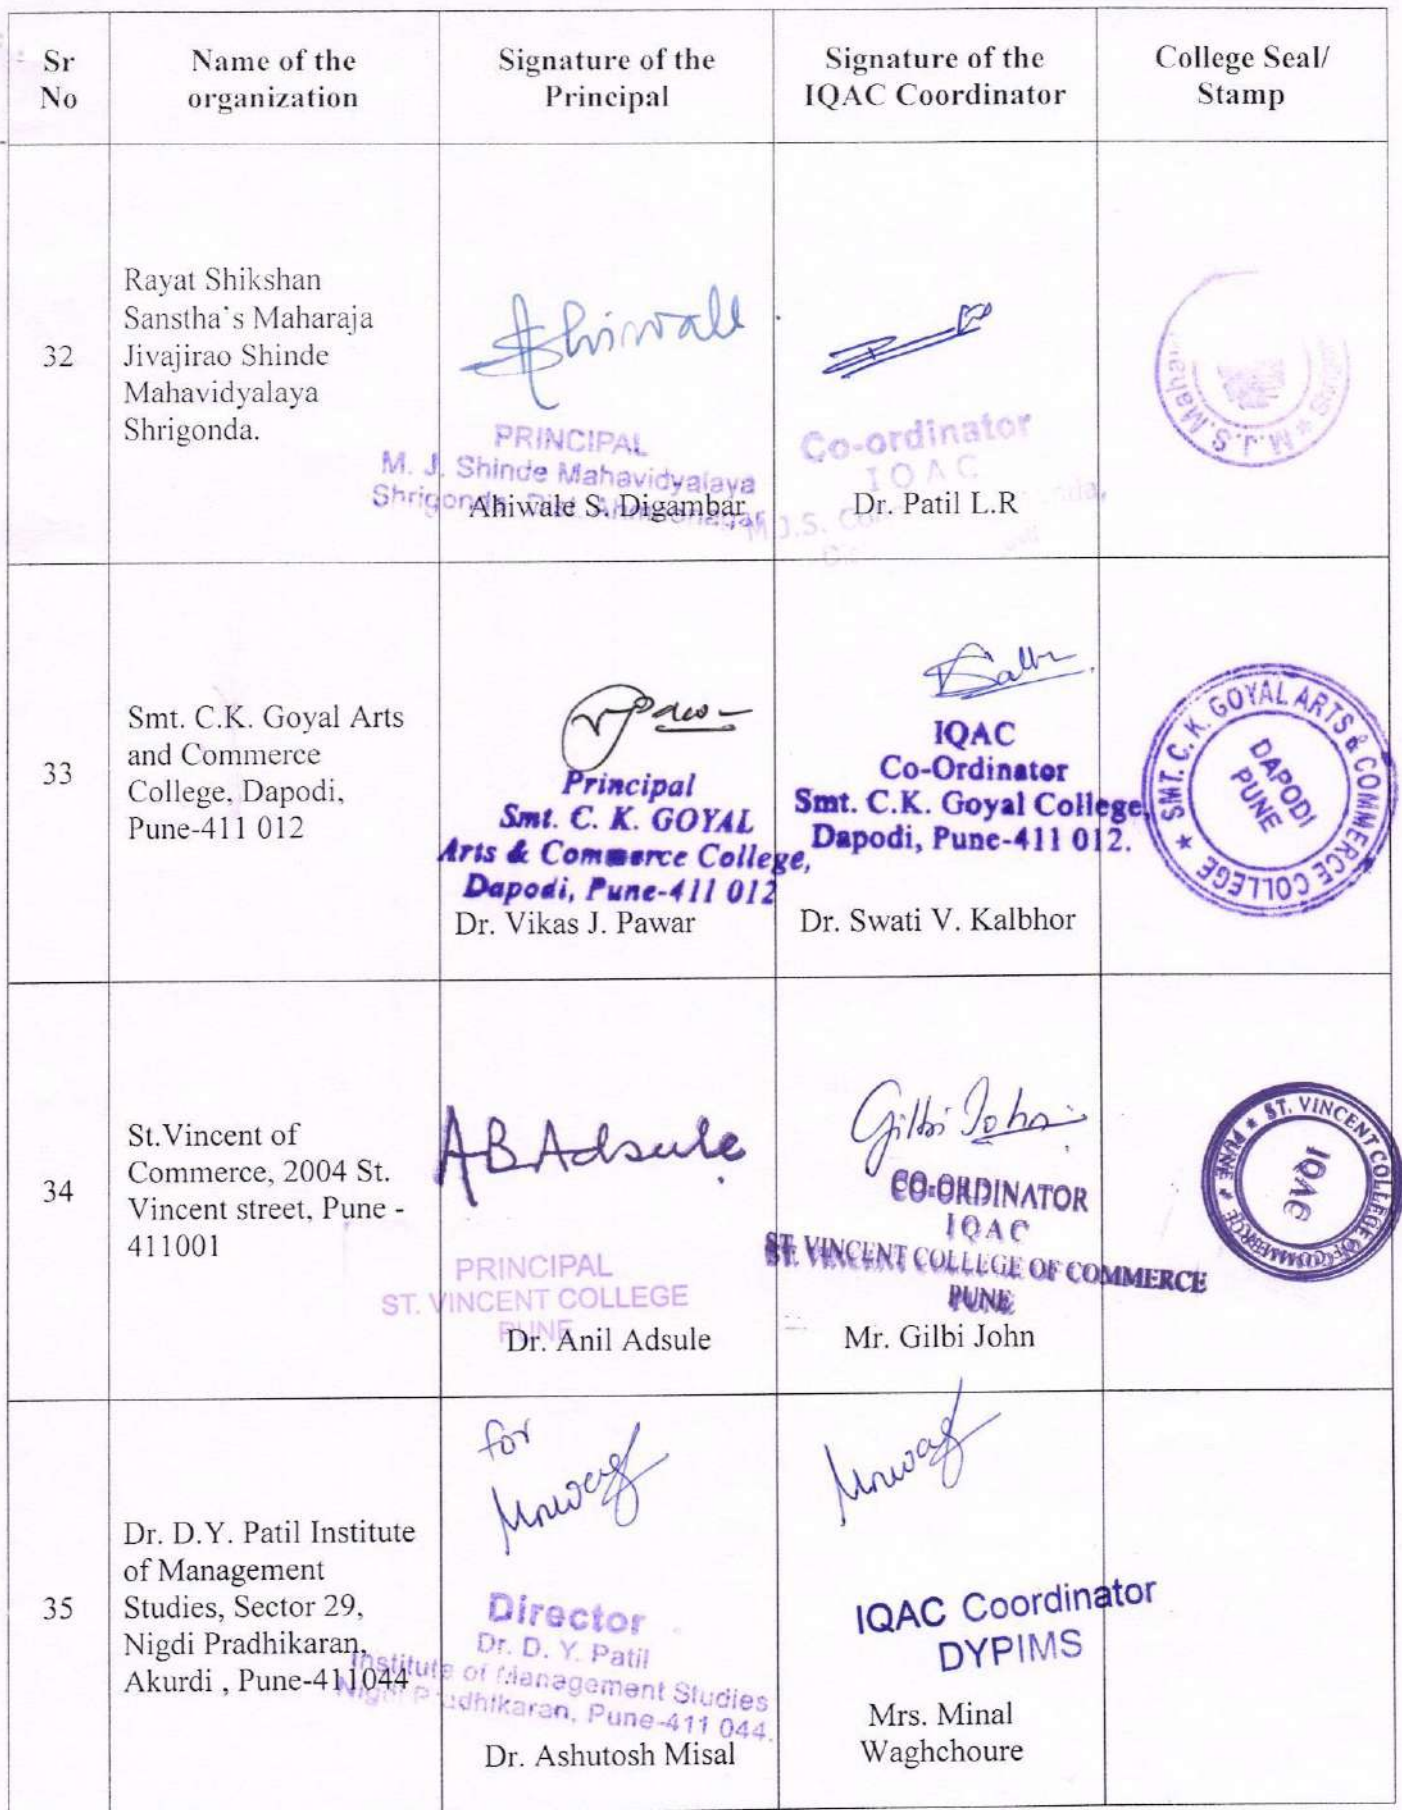 Sr
No
Name of the
organization
Signature of the
Principal
Signature of the
IQAC Coordinator
College Seal/
Stamp
32
Rayat Shikshan
Sanstha`s Maharaja
Jivajirao Shinde
Mahavidyalaya
Shrigonda.
Ahiwale
PRINCIPAL
M. J. Shinde Mahavidyalaya
Shrigonda, Dist. Ahmednagar
Ahiwale S. Digambar
Co-ordinator
IQAC
M.J.S.
Dr. Patil L.R
★ M.J.S.
33
Smt. C.K. Goyal Arts
and Commerce
College, Dapodi,
Pune-411 012
Principal
Smt. C. K. GOYAL
Arts & Commerce College,
Dapodi, Pune-411 012
Dr. Vikas J. Pawar
IQAC
Co-Ordinator
Smt. C.K. Goyal College,
Dapodi, Pune-411 012.
Dr. Swati V. Kalbhor
★ SMT. C. K. GOYAL ARTS & COMMERCE COLLEGE
DAPODI
PUNE
34
St.Vincent of
Commerce, 2004 St.
Vincent street, Pune -
411001
ABAdsule
PRINCIPAL
ST. VINCENT COLLEGE
PUNE
Dr. Anil Adsule
Gilbi John
CO-ORDINATOR
IQAC
ST. VINCENT COLLEGE OF COMMERCE
PUNE
Mr. Gilbi John
★ ST. VINCENT COLLEGE OF COMMERCE ★ PUNE
IQAC
35
Dr. D.Y. Patil Institute
of Management
Studies, Sector 29,
Nigdi Pradhikaran,
Akurdi , Pune-411044
for
Director
Dr. D. Y. Patil
Institute of Management Studies
Nigdi Pradhikaran, Pune-411 044.
Dr. Ashutosh Misal
IQAC Coordinator
DYPIMS
Mrs. Minal
Waghchoure